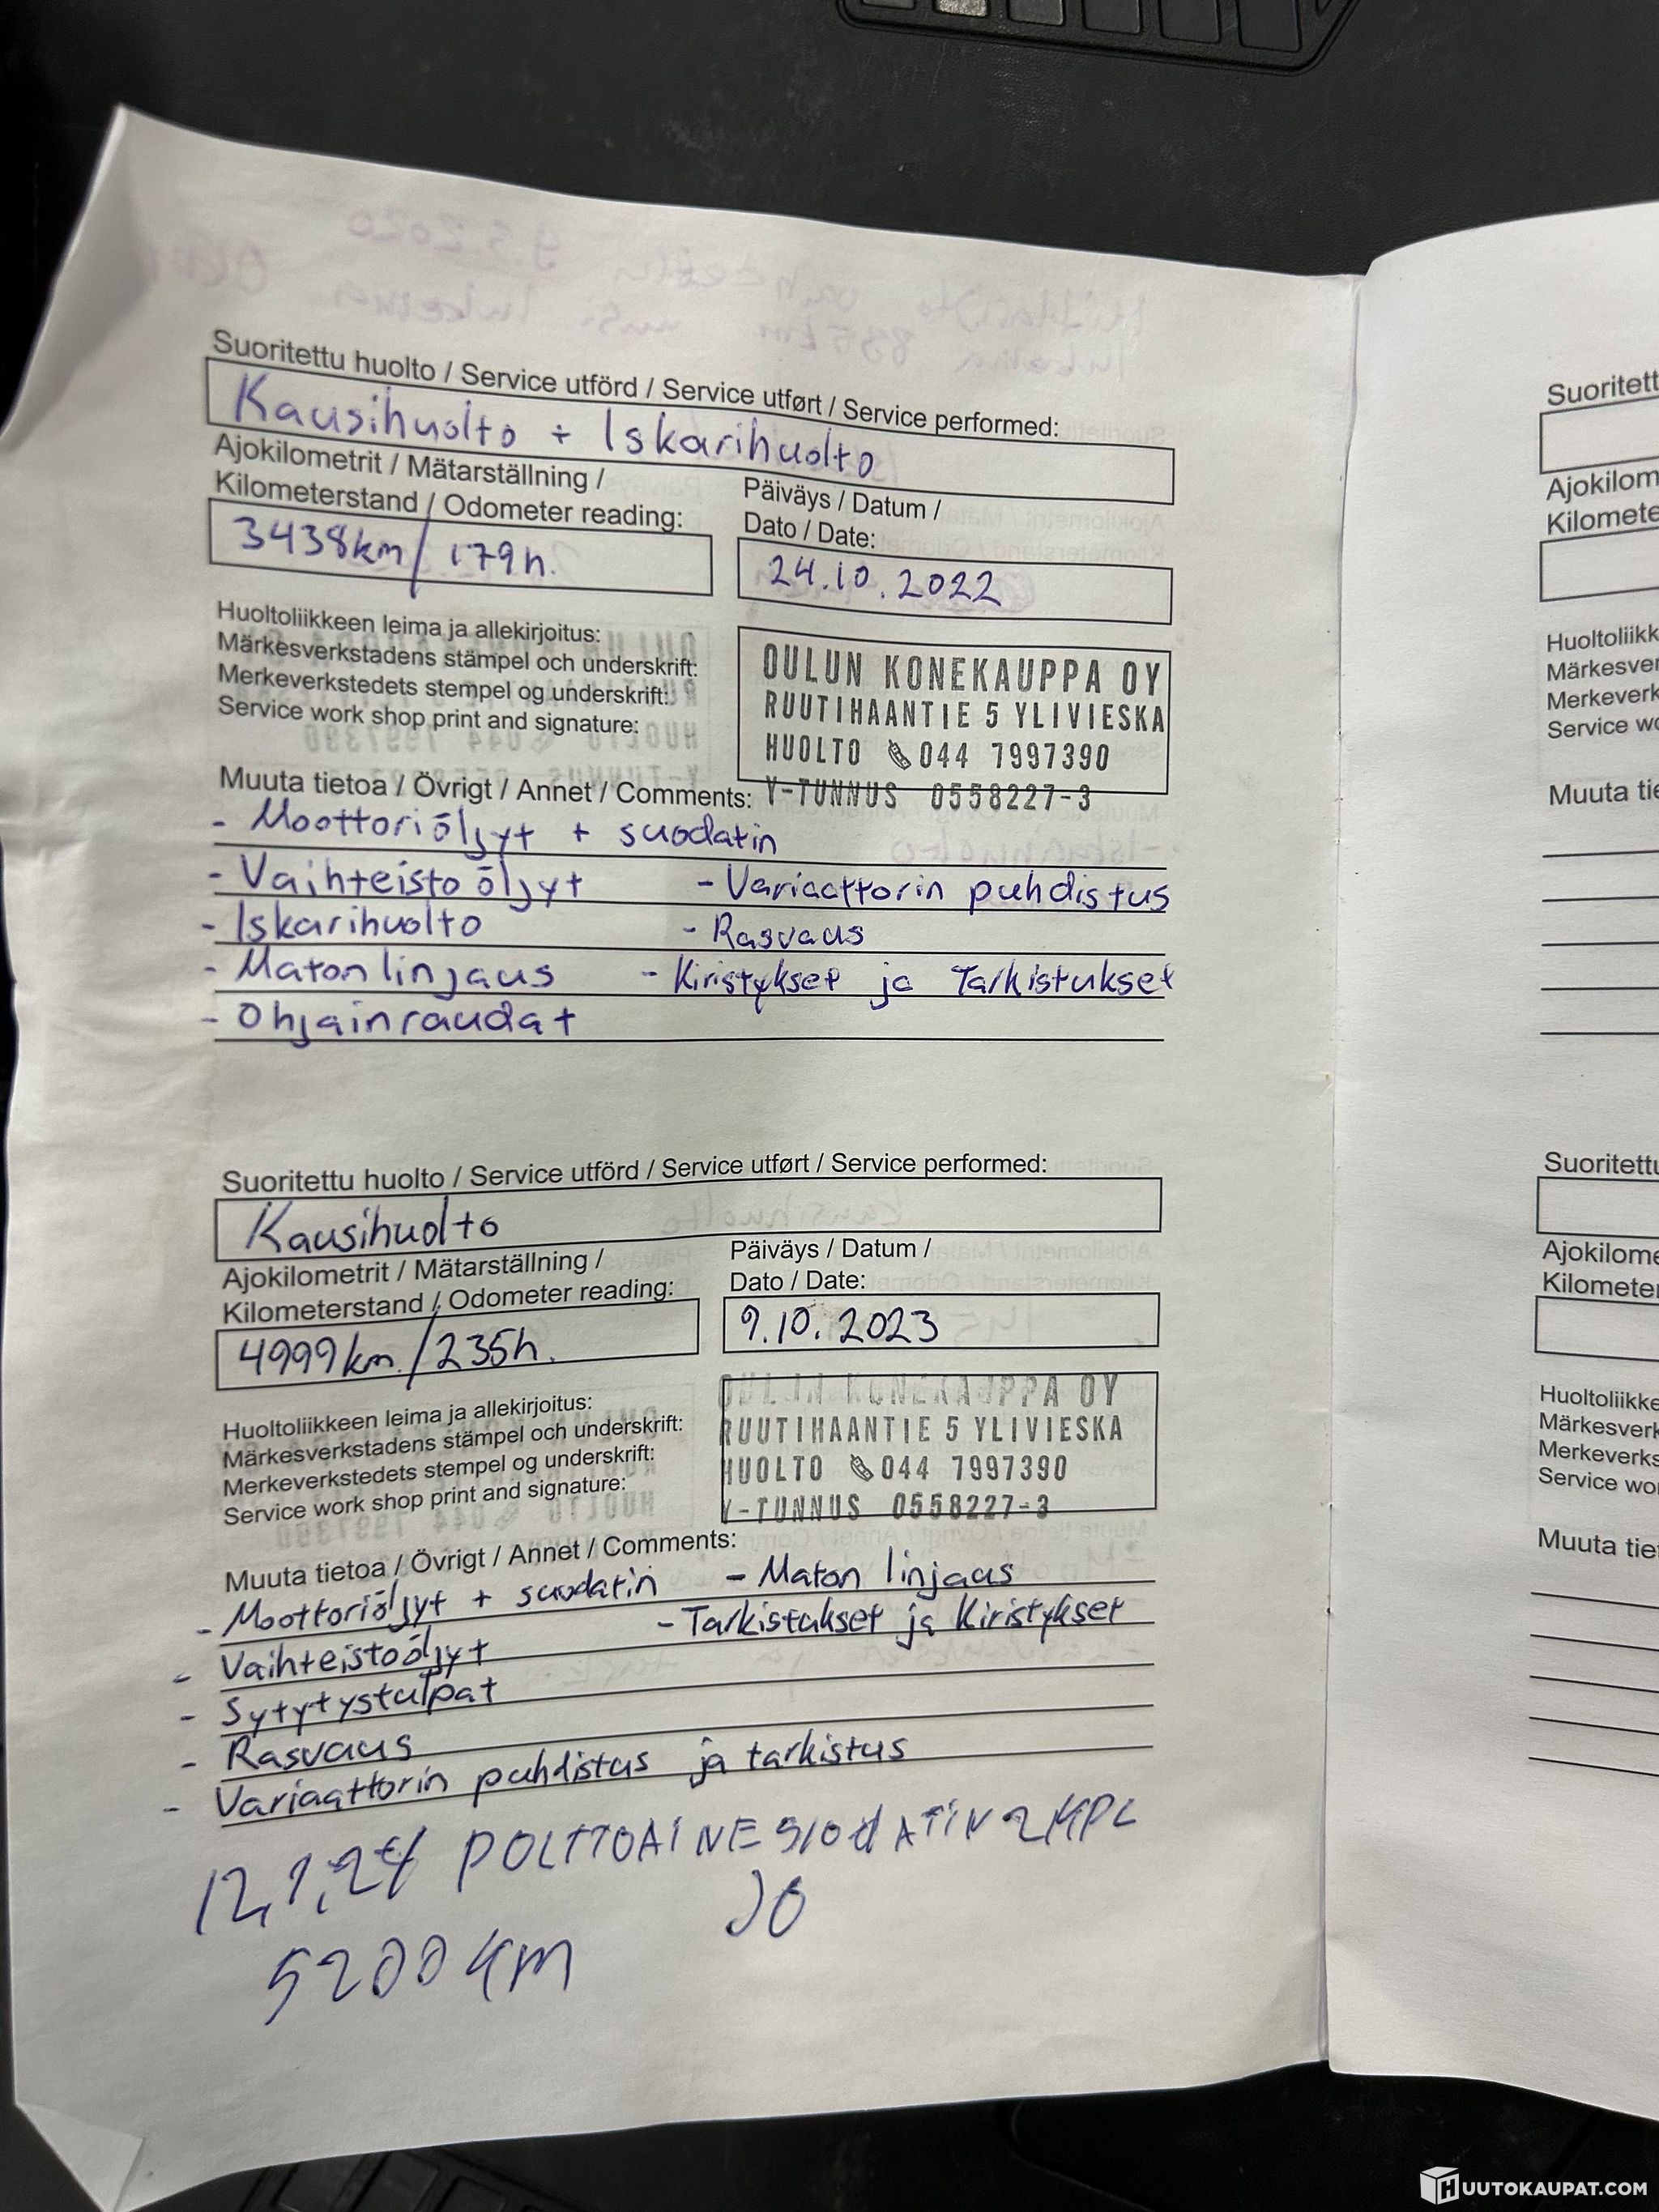 Suoritettu huolto / Service utförd / Service utført / Service performed:
Kausihuolto + Iskarihuolto
Ajokilometrit / Mätarställning /
Kilometerstand / Odometer reading:
3438km / 179h.
Päiväys / Datum /
Dato / Date:
24.10.2022
Huoltoliikkeen leima ja allekirjoitus:
Märkesverkstadens stämpel och underskrift:
Merkeverkstedets stempel og underskrift:
Service work shop print and signature:
OULUN KONEKAUPPA OY
RUUTIHAANTIE 5 YLIVIESKA
HUOLTO 044 7997390
Y-TUNNUS 0558227-3
Muuta tietoa / Övrigt / Annet / Comments:
- Moottoriöljyt + suodatin
- Vaihteistoöljyt - Variaattorin puhdistus
- Iskarihuolto - Rasvaus
- Maton linjaus - Kiristykset ja Tarkistukset
- Ohjainraudat
Suoritettu huolto / Service utförd / Service utført / Service performed:
Kausihuolto
Ajokilometrit / Mätarställning /
Kilometerstand / Odometer reading:
4999km. / 235h.
Päiväys / Datum /
Dato / Date:
9.10.2023
Huoltoliikkeen leima ja allekirjoitus:
Märkesverkstadens stämpel och underskrift:
Merkeverkstedets stempel og underskrift:
Service work shop print and signature:
OULUN KONEKAUPPA OY
RUUTIHAANTIE 5 YLIVIESKA
HUOLTO 044 7997390
Y-TUNNUS 0558227-3
Muuta tietoa / Övrigt / Annet / Comments:
- Moottoriöljyt + suodatin - Maton linjaus
- Vaihteistoöljyt - Tarkistukset ja Kiristykset
- Sytytystulpat
- Rasvaus
- Variaattorin puhdistus ja tarkistus
12,1,24 POLTTOAINESUODATIN 2KPL
JO
5200KM
Suoritett
Ajokilom
Kilomete
Huoltoliikk
Märkesver
Merkeverk
Service wo
Muuta tie
Suoritettu
Ajokilome
Kilometer
Huoltoliikke
Märkesverk
Merkeverks
Service wor
Muuta tie
HUUTOKAUPAT.COM